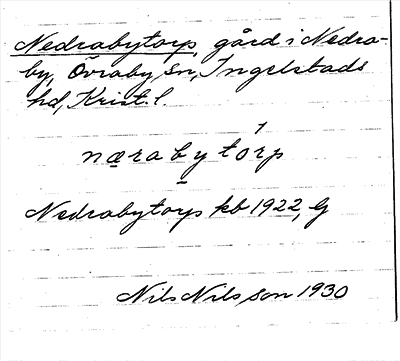 Nedrabytorp, gård i Nedra-
by, Övraby sn, Ingelstads
hd, Krist. l.
næra by tórp
Nedrabytorp kb 1922, G
Nils Nilsson 1930